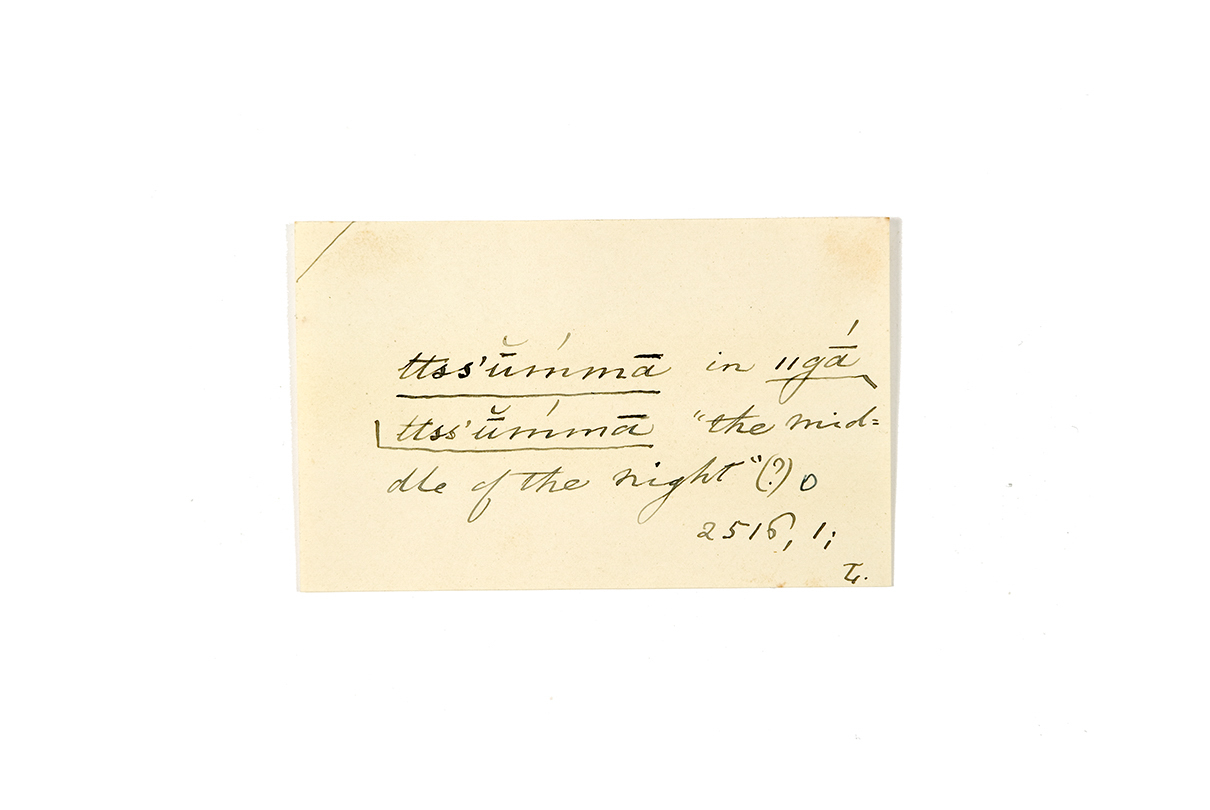 ttss'ū̆ḿmā in ııgā́
ttss'ū̆ḿmā "the mid=
dle of the night"(?) o
2516, 1;
L.